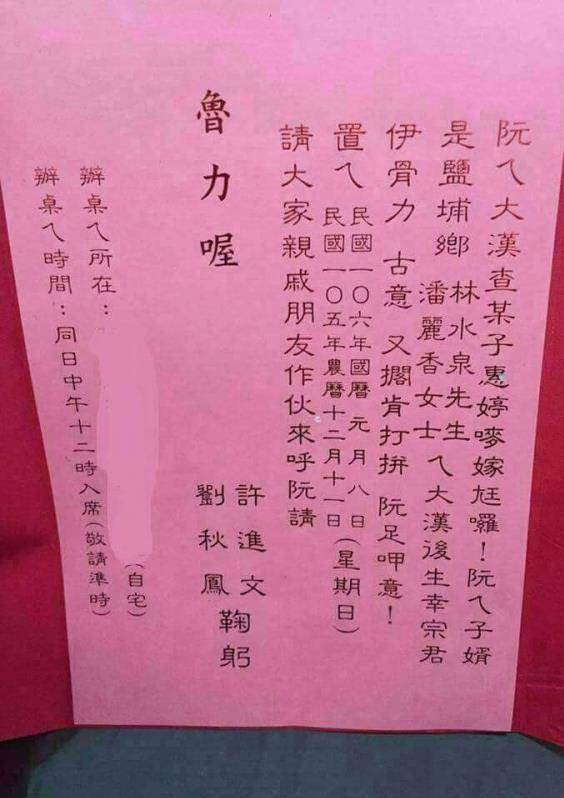 阮ㄟ大漢查某子惠婷嘜嫁尪囉！阮ㄟ子婿
是鹽埔鄉 林水泉先生
潘麗香女士 ㄟ大漢後生幸宗君
伊骨力 古意 又擱肯打拚 阮足呷意！
置ㄟ 民國一〇六年國曆 元月八日
民國一〇五年農曆十二月十一日 (星期日)
請大家親戚朋友作伙來呼阮請
魯力喔
許進文
劉秋鳳
鞠躬
辦桌ㄟ所在： (自宅)
辦桌ㄟ時間：同日中午十二時入席(敬請準時)